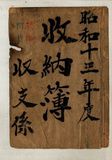 昭和十三年度
收納簿
收支係